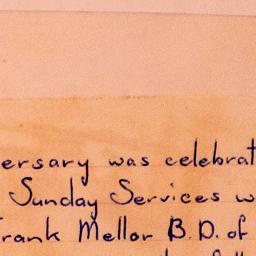 ersary was celebrat
Sunday Services w
rank Mellor B.D. of